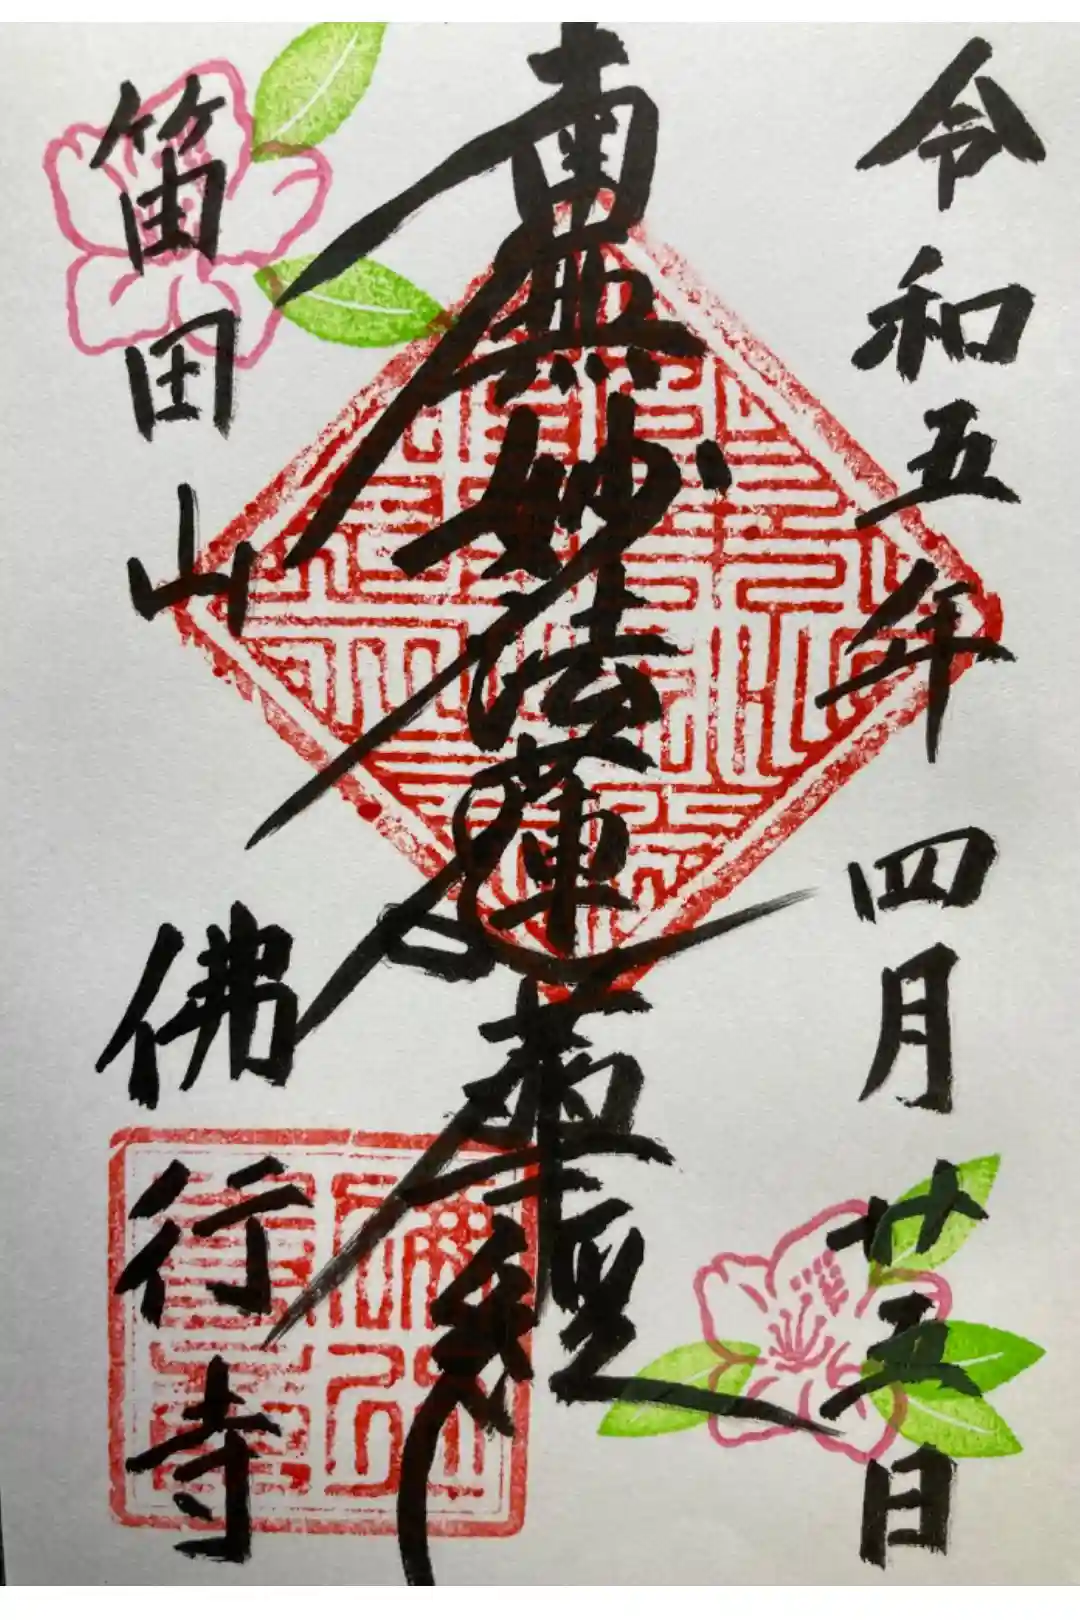 令和五年四月廿五日
南無妙法蓮華經
笛田山
佛行寺